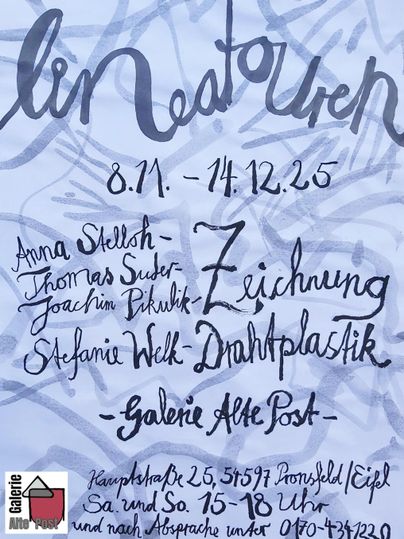 lineatouren
8.11. - 14.12.25
Anna Stelloh -
Thomas Suder -
Joachim Pikulik - Zeichnung
Stefanie Welk - Drahtplastik
- Galerie Alte Post -
Hauptstraße 25, 54597 Pronsfeld/Eifel
Sa. und So. 15-18 Uhr
und nach Absprache unter 0170-4341220
Galerie
Alte Post